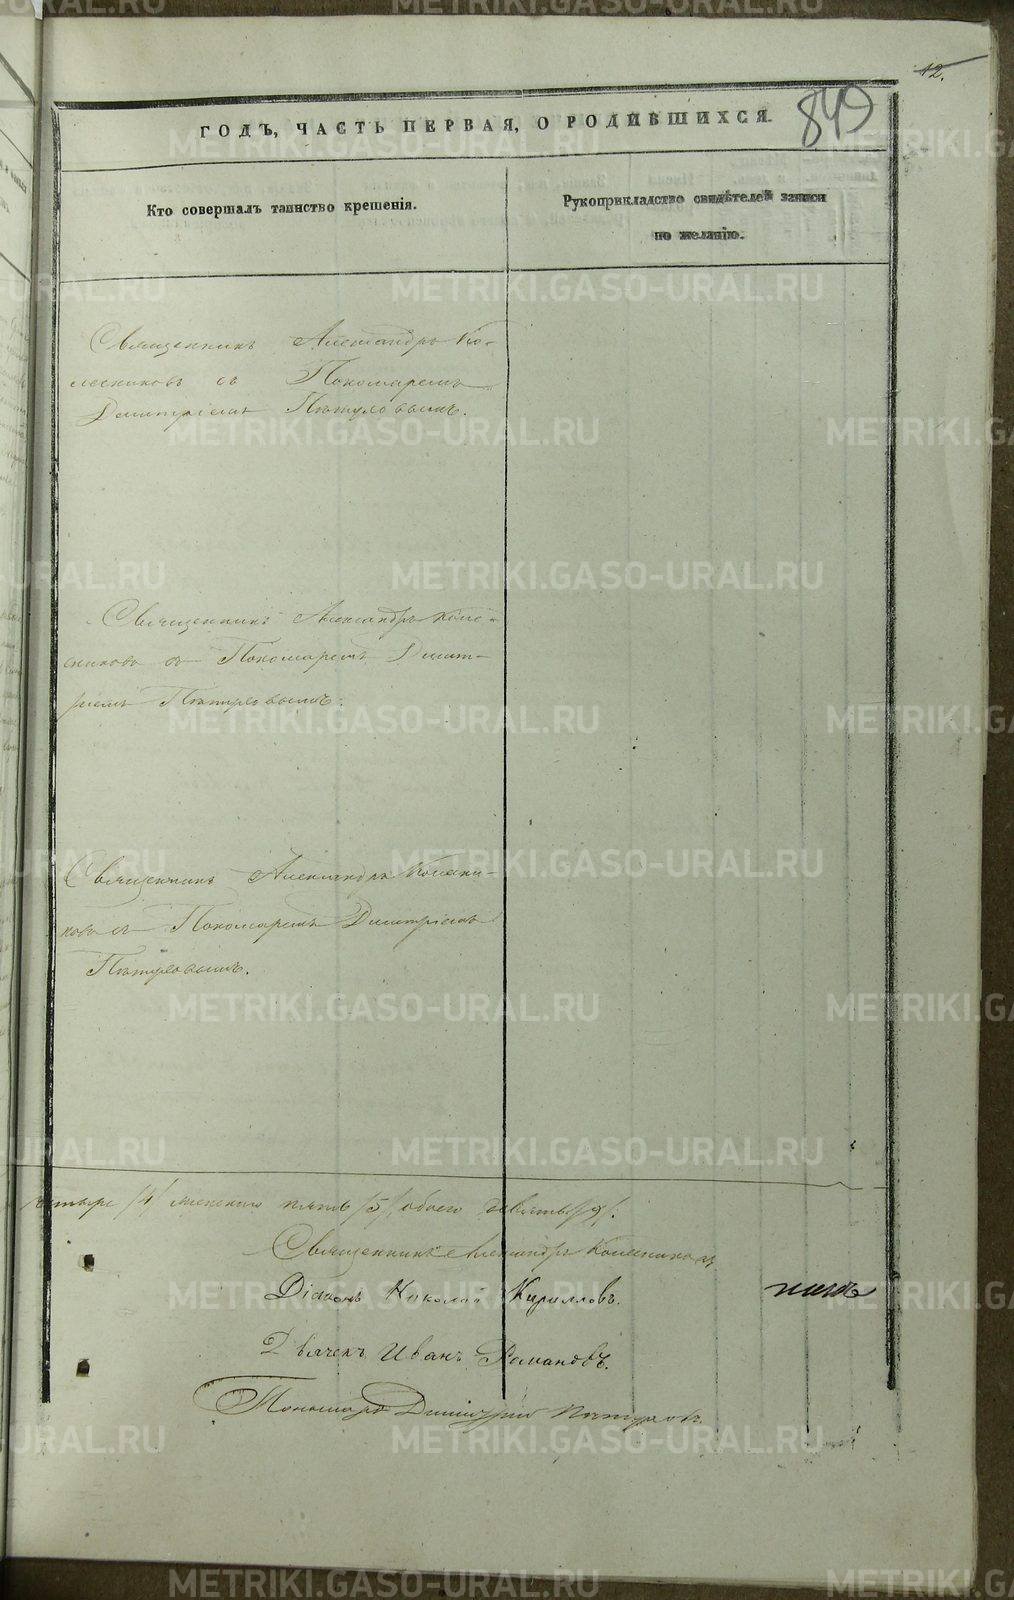 12.
849
ГОДЪ, ЧАСТЬ ПЕРВАЯ, О РОДИВШИХСЯ.
Кто совершалъ таинство крещенія.
Рукоприкладство свидѣтелей записи
по желанію.
Священникъ Александръ Ко-
лесниковъ съ Пономаремъ
Димитріемъ Пѣтуховымъ.
Священникъ Александръ Коле-
сниковъ съ Пономаремъ Димит-
ріемъ Пѣтуховымъ.
Священникъ Александръ Колесни-
ковъ съ Пономаремъ Димитріемъ
Пѣтуховымъ.
четыре /4/ женского пять /5/, обоего девять /9/.
Священникъ Александръ Колесниковъ
Діаконъ Николай Кирилловъ.
Дьячекъ Иванъ Романовъ.
Пономарь Димитрій Пѣтуховъ.
METRIKI.GASO-URAL.RU